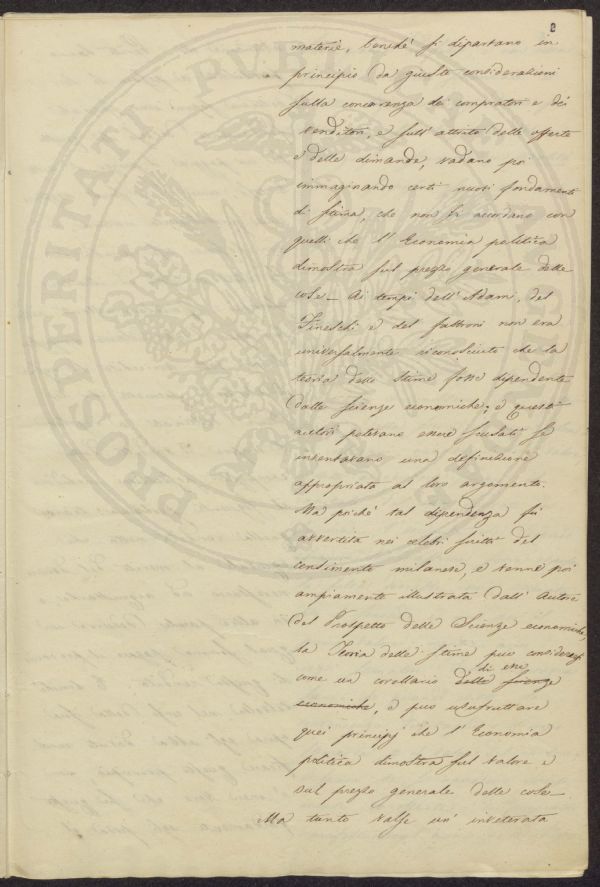 2
materie, benché si dipartano in
principio da giuste considerazioni
sulla concorrenza dei compratori e dei
venditori, e sull' attrito delle offerte
e delle dimande, vadano poi
immaginando certi nuovi fondamenti
di stima, che non si accordano con
quelli che l' Economia politica
dimostra sul prezzo generale delle
cose _ Ai tempi dell' Adami, del
Fineschi e del Fattroni non era
universalmente riconosciuto che la
teoria delle stime fosse dipendente
dalle scienze economiche; e questi
autori potevano essere scusati se
inventavano una definizione
appropriata al loro argomento.
Ma poiché tal dipendenza fu
avvertita nei celebri scritti del
censimento milanese, e venne poi
ampiamente illustrata dall' Autore
del Prospetto delle Scienze economiche,
la Teoria delle stime può considerarsi
di esse
come un corollario delle scienze
economiche, e può usufruttare
quei principj che l' Economia
politica dimostra sul valore e
sul prezzo generale delle cose
Ma tanto valse un' inveterata
PROSPERITATI PUBLICAE